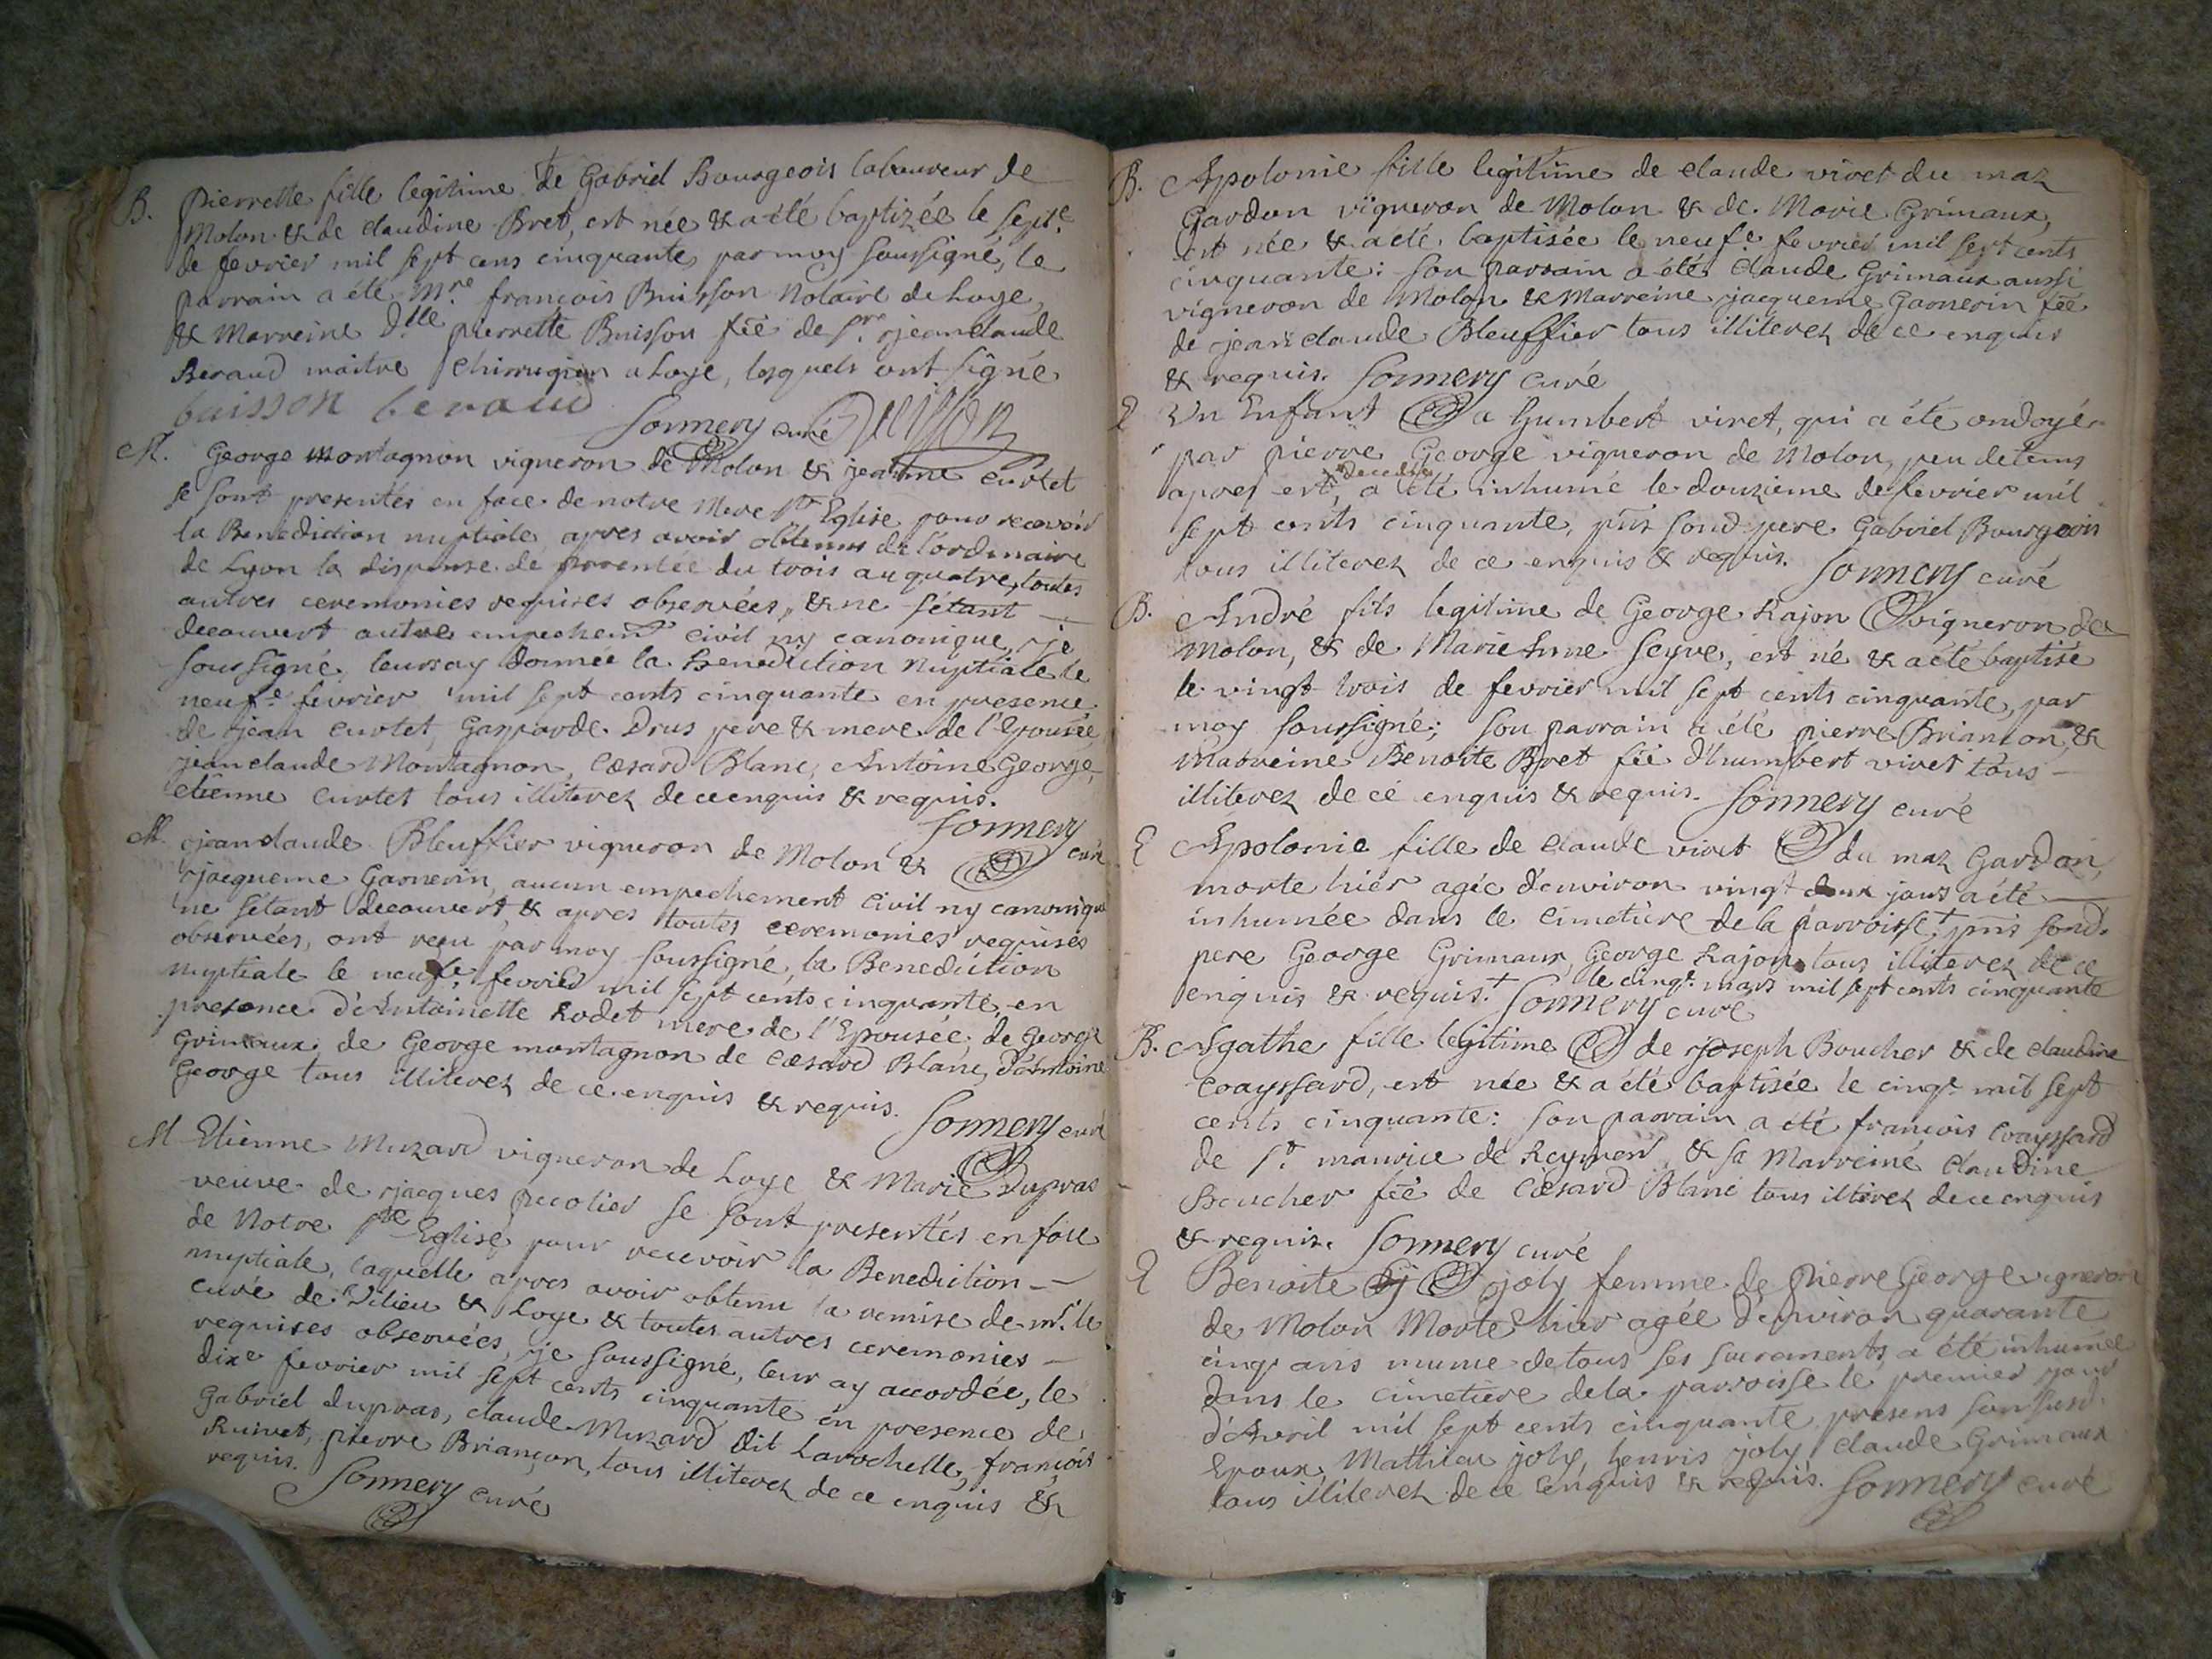 B. Pierrette fille legitime de Gabriel Bourgeois laboureur de
Molon & de claudine Bret, est née & a été baptizée le sept.e
de fevrier mil sept cens cinquante, par moy soussigné, le
parrain a été M.re françois Buisson Notaire de Loye,
& Marreine D.lle pierrette Buisson fẽe de S.r jean claude
Beraud maitre Chirrugien a Loye, lesquels ont signé
buisson beraud Sonnery curé Buisson
M. George Montagnon vigneron de Molon & jeanne curtet
se sont presentés en face de notre Mere S.te Eglise pour recevoir
la Benediction nuptiale, apres avoir obtenus de l'ordinaire
de Lyon la dispense de parentée du trois au quatre, toutes
autres ceremonies requises observées, & ne s'étant
decouvert autre empechem.t civil ny canonique, je
soussigné, leurs ay donnée la Benediction Nuptiale le
neuf.e fevrier mil sept cents cinquante en presence
de jean curtet, Gasparde Drus pere & mere de l'Epousée,
jean claude Montagnon, Cæsard Blanc, Antoine George,
etienne curtet tous illiterez de ce enquis & requis.
Sonnery curé
M. jean claude Bleuffier vigneron de Molon &
jacqueme Garnerin, aucun empechement civil ny canonique
ne s'étant decouvert, & apres toutes ceremonies requises
observées, ont reçu par moy soussigné, la Benediction
nuptiale le neuf.e fevrier mil sept cents cinquante, en
presence d'Antoinette Rodet mere de l'Epousée, de George
Grimaux, de George montagnon de Cæsard Blanc, d'Antoine
George tous illiterez de ce enquis & requis. Sonnery curé
M Etienne Muzard vigneron de Loye & Marie Dupras
veuve de jacques pecolier se sont presentés en face
de Notre S.te Eglise, pour recevoir la Benediction
nuptiale, laquelle apres avoir obtenu la remise de m.r le
curé de Vilieu & Loye & toutes autres ceremonies
requises observées, je soussigné, leur ay accordée, le
dix.e fevrier mil sept cents cinquante en presence de
Gabriel dupras, claude Muzard dit Larochelle, françois
Ruivet, pierre Briançon, tous illiterez de ce enquis &
requis. Sonnery curé
B. Apolonie fille legitime de claude viret du maz
Gardon vigneron de Molon & de Marie Grimaux,
est née & a été baptisée le neuf.e fevrier mil sept cents
cinquante: son parrain a été claude Grimaux aussi
vigneron de Molon & Marreine jacqueme Garnerin fẽe
de jean claude Bleuffier tous illiterez de ce enquis
& requis. Sonnery curé
E Un Enfant a humbert viret, qui a été ondoyé
par pierre George vigneron de Molon, peu de tems
apres est decedé, a été inhumé le douzieme de fevrier mil
sept cents cinquante, pñs sond. pere Gabriel Bourgeois
tous illiterez de ce enquis & requis. Sonnery curé
B. André fils legitime de George Rajon vigneron de
Molon, & de Marie Anne Seyve, est né & a été baptisé
le vingt trois de fevrier mil sept cents cinquante, par
moy soussigné; son parrain a été pierre Briançon, &
Marreine Benoite Bret fẽe d'humbert viret tous
illiterez de ce enquis & requis. Sonnery curé
E Apolonie fille de claude viret du maz Gardon,
morte hier agée d'environ vingt deux jours a été
inhumée dans le cimetiere de la parroisse † pñs sond.
pere George Grimaux, George Rajon tous illiterez de ce
enquis & requis. † le cinq.e mars mil sept cents cinquante
Sonnery curé
B. Agathe fille legitime de joseph Boucher & de claudine
Coayssard, est née & a été baptisée le cinq.e mil sept
cents cinquante: son parrain a été françois Coayssard
de S.t maurice de Reymen, & sa Marreine claudine
Boucher fẽe de Cæsard Blanc tous illirez de ce enquis
& requis. Sonnery curé
E Benoite joly femme de Pierre George vigneron
de Molon Morte hier agée d'environ quarante
cinq ans munie de tous ses sacrements, a été inhumée
dans le cimetiere de la parroisse le premier jour
d'Avril mil sept cents cinquante presens son susd.
Epoux, Mathieu joly, henris joly claude Grimaux
tous illiterez de ce enquis & requis. Sonnery curé